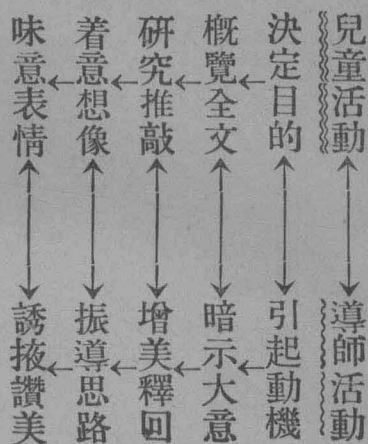 兒童活動
導師活動
決定目的
引起動機
概覽全文
暗示大意
研究推敲
增美釋回
着意想像
振導思路
味意表情
誘掖讚美